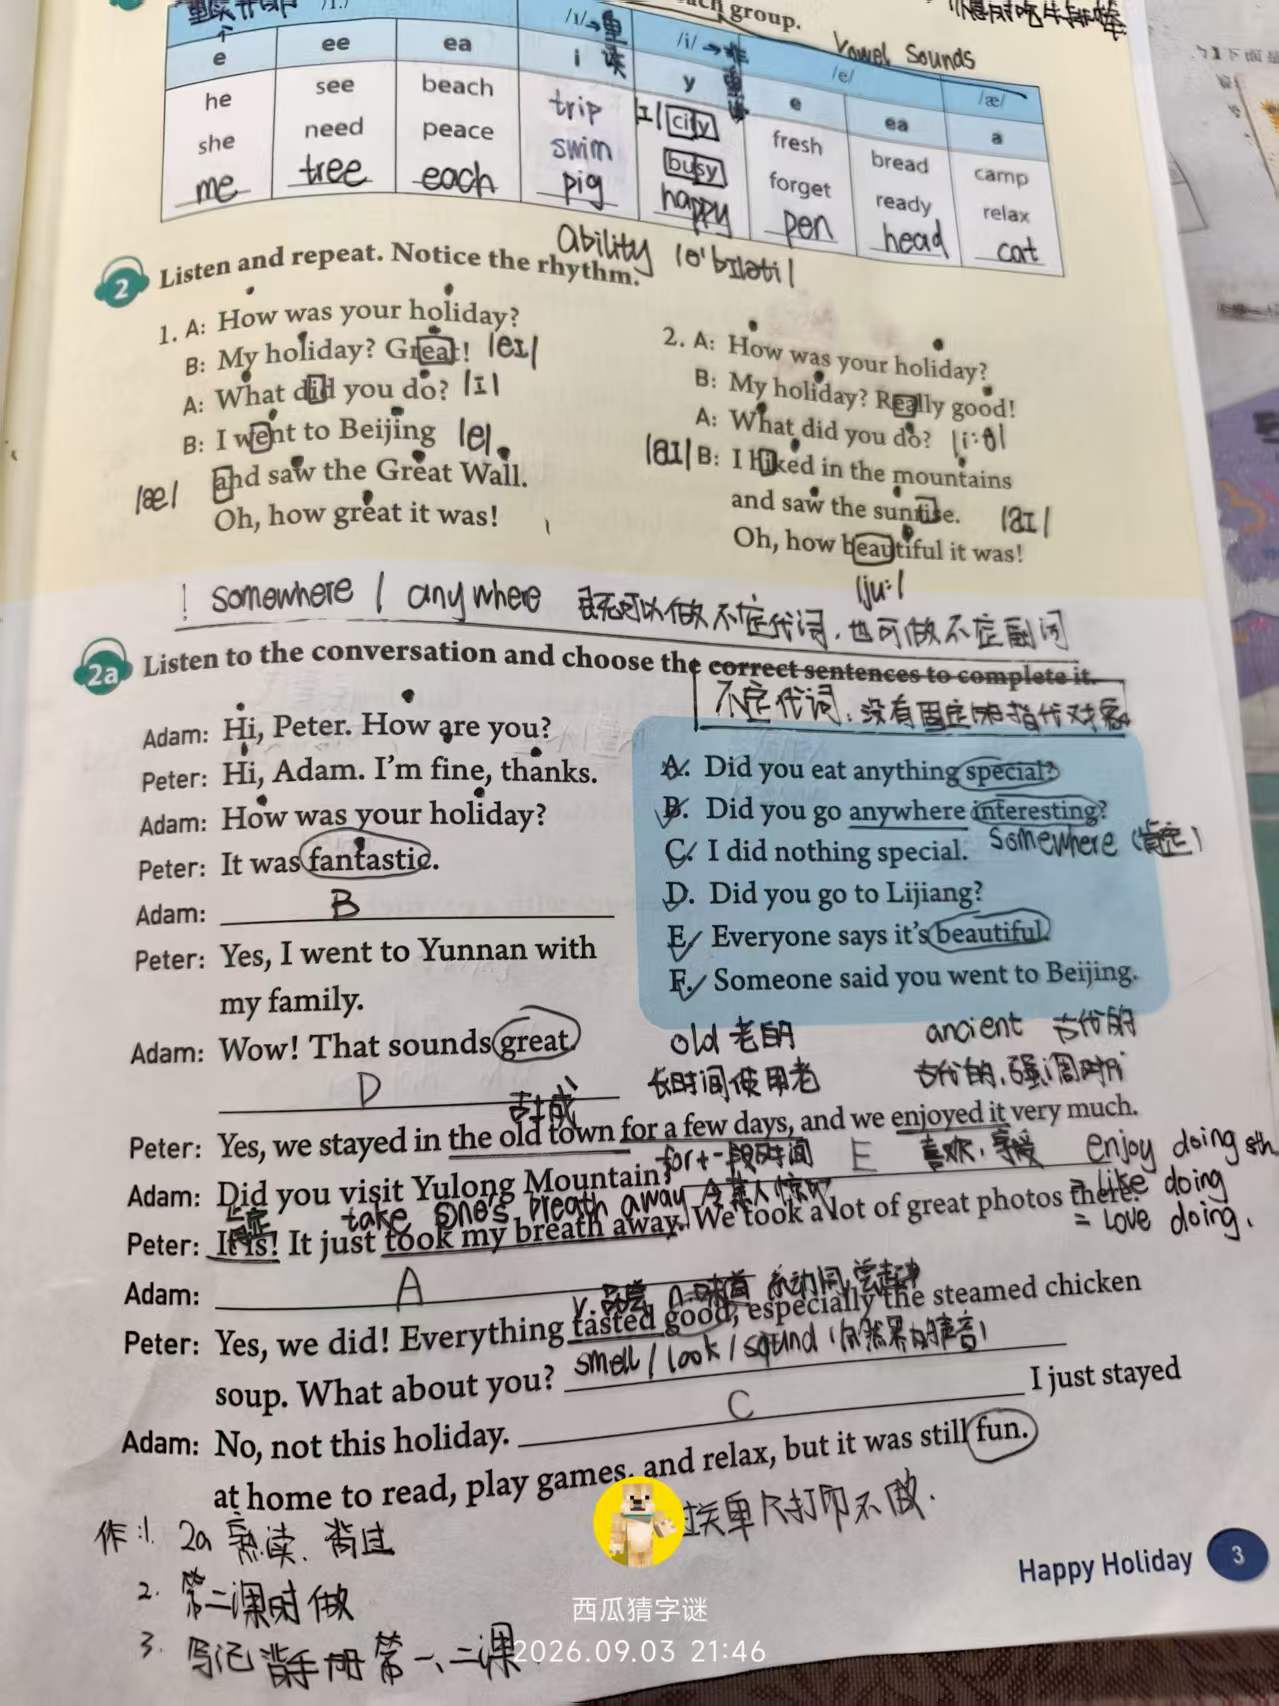 ach group.
Vowel Sounds
/ɪ/→重读
/i/→非重读
/e/
/æ/
e ee ea i y e ea a
he see beach trip /ɪ/ city fresh bread camp
she need peace swim busy forget ready relax
me tree each pig happy pen head cat
ability /ə'bɪləti/
2 Listen and repeat. Notice the rhythm.
1. A: How was your holiday?
B: My holiday? Great! /eɪ/
A: What did you do? /ɪ/
B: I went to Beijing /e/
/æ/ and saw the Great Wall.
Oh, how great it was!
2. A: How was your holiday?
B: My holiday? Really good!
A: What did you do? /i:ə/
/aɪ/ B: I hiked in the mountains
and saw the sunrise. /aɪ/
Oh, how beautiful it was!
/ju:/
! somewhere / anywhere 既可以做不定代词，也可做不定副词
2a Listen to the conversation and choose the correct sentences to complete it.
不定代词：没有固定的指代对象
Adam: Hi, Peter. How are you?
Peter: Hi, Adam. I'm fine, thanks.
Adam: How was your holiday?
Peter: It was fantastic.
Adam: B
Peter: Yes, I went to Yunnan with
my family.
Adam: Wow! That sounds great.
D
A. Did you eat anything special?
B. Did you go anywhere interesting?
C. I did nothing special. Somewhere (肯定)
D. Did you go to Lijiang?
E. Everyone says it's beautiful.
F. Someone said you went to Beijing.
old 老的 ancient 古代的
长时间使用老 古代的，强调时代
古城
Peter: Yes, we stayed in the old town for a few days, and we enjoyed it very much.
for+一段时间 喜欢，享受 enjoy doing sth
Adam: Did you visit Yulong Mountain? E
= like doing
take one's breath away 令某人惊叹
肯定
Peter: It is! It just took my breath away. We took a lot of great photos there.
= love doing.
Adam: A
v. 品尝 n. 味道 系动词
Peter: Yes, we did! Everything tasted good, especially the steamed chicken
smell / look / sound (自然界的声音)
soup. What about you?
Adam: No, not this holiday. C I just stayed
at home to read, play games, and relax, but it was still fun.
作: 1. 2a 熟读、背过
2. 第二课时做
3. 写记背手册第一、二课
Happy Holiday 3
西瓜猜字谜
2026.09.03 21:46